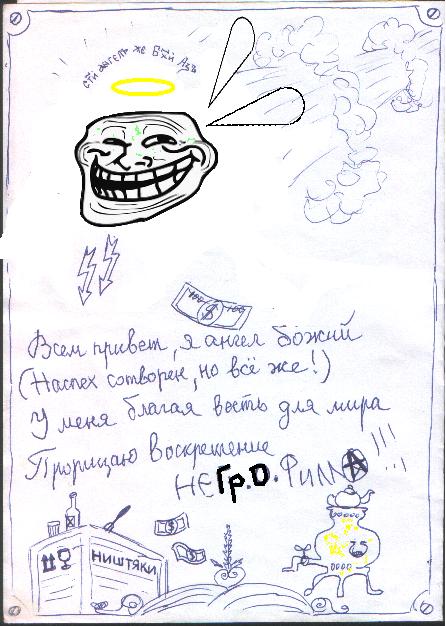 СТЙ АГГЕЛЪ ЖЕ БЖЙ АЗЪ
100 $ 100
Всем привет, я ангел божий
(Наспех сотворен, но всё же!)
У меня благая весть для мира
Прорицаю воскрешение
НЕГр.О.ФИЛЛА!!!...
$
$
НИШТЯКИ